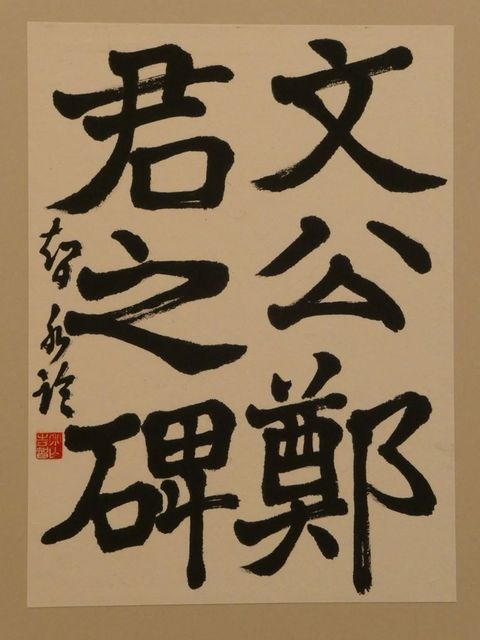 文公鄭
君之碑